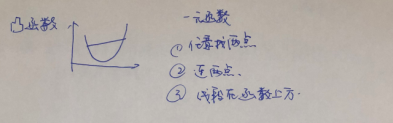 凸函数
一元函数
① 任意找两点
② 连两点.
③ 线段在函数上方.